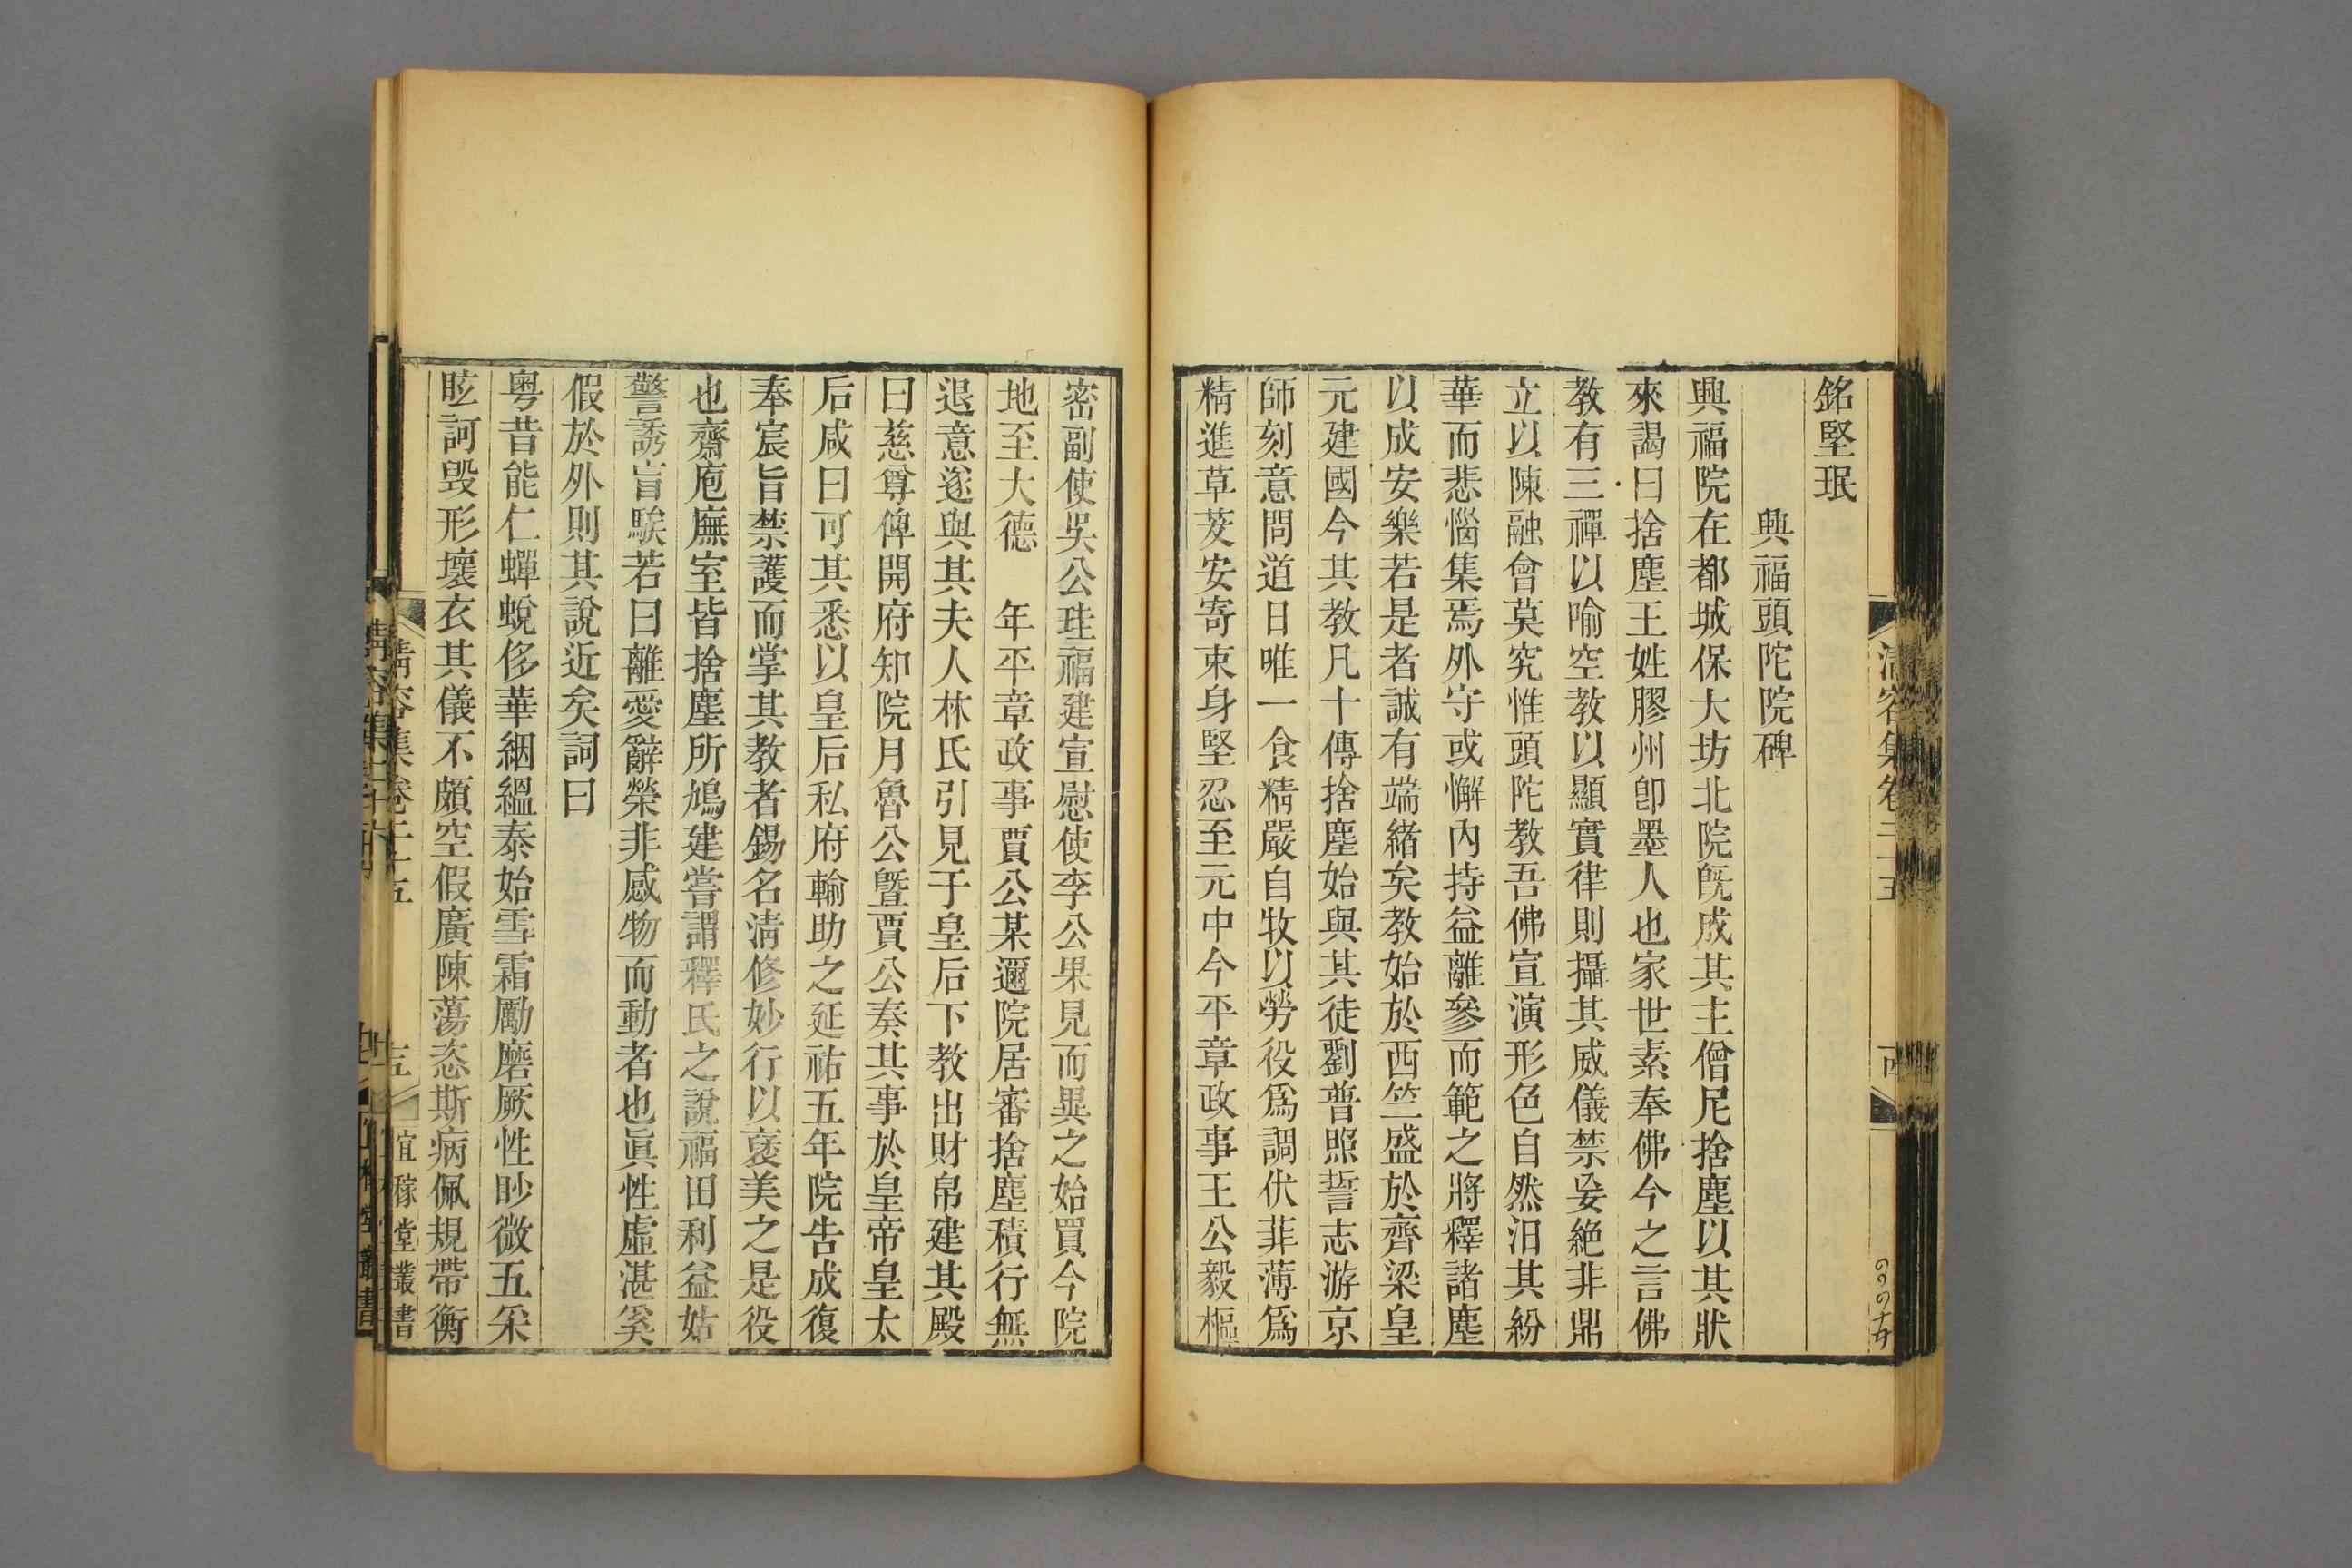 銘堅珉
興福頭陀院碑
興福院在都城保大坊北院旣成其主僧尼捨塵以其狀
來謁曰捨塵王姓膠州卽墨人也家世素奉佛今之言佛
教有三禪以喻空教以顯實律則攝其威儀禁妄絶非鼎
立以陳融會莫究惟頭陀教吾佛宣演形色自然汨其紛
華而悲惱集焉外守或懈內持益離參而範之將釋諸塵
以成安樂若是者誠有端緒矣教始於西竺盛於齊梁皇
元建國今其教凡十傳捨塵始與其徒劉普照誓志游京
師刻意問道日唯一食精嚴自牧以勞役爲調伏非薄爲
精進草芰安寄束身堅忍至元中今平章政事王公毅樞
密副使吳公珪福建宣慰使李公果見而異之始買今院
地至大德 年平章政事賈公某邇院居審捨塵積行無
退意遂與其夫人林氏引見于皇后下教出財帛建其殿
曰慈尊俾開府知院月魯公曁賈公奏其事於皇帝皇太
后咸曰可其悉以皇后私府輸助之延祐五年院告成復
奉宸旨禁護而掌其教者錫名淸修妙行以褒美之是役
也齋庖廡室皆捨塵所鳩建嘗謂釋氏之說福田利益姑
警誘盲騃若曰離愛辭榮非感物而動者也眞性虛湛奚
假於外則其說近矣詞曰
粤昔能仁蟬蛻侈華絪縕泰始雪霜勵磨厥性眇微五采
眩訶毁形壞衣其儀不頗空假廣陳蕩恣斯病佩規帶衡
淸容集卷二十五
宜稼堂叢書